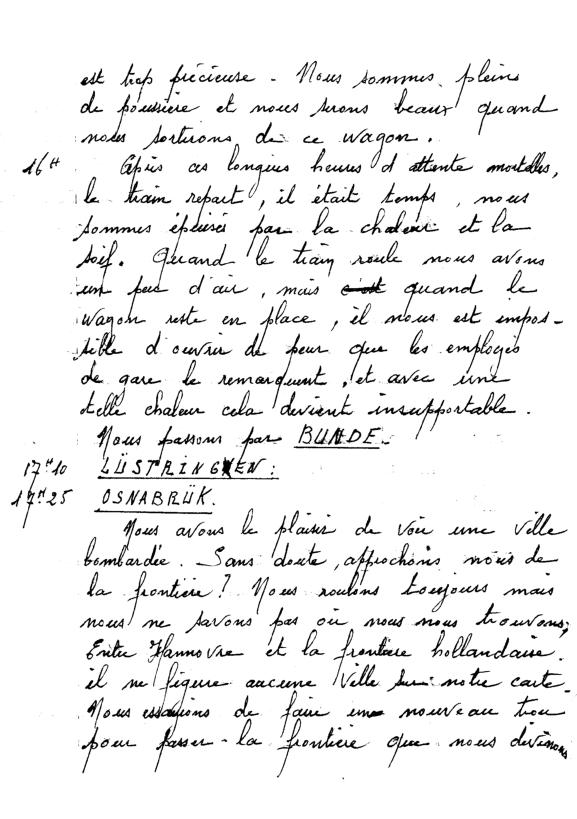 est trop précieuse - Nous sommes pleins
de poussière et nous serons beaux quand
nous sortirons de ce wagon.
16H Après ces longues heures d'attente mortelles,
le train repart, il était temps, nous
sommes épuisés par la chaleur et la
soif. Quand le train roule nous avons
un peu d'air, mais c'est quand le
wagon reste en place, il nous est impos-
sible d'ouvrir de peur que les employés
de gare le remarquent, et avec une
telle chaleur cela devient insupportable.
Nous passons par BUNDE.
17H10 LÜSTRINGEN:
17H25 OSNABRÜK.
Nous avons le plaisir de voir une ville
bombardée. Sans doute, approchons nous de
la frontière? Nous roulons toujours mais
nous ne savons pas où nous nous trouvons;
Entre Hannovre et la frontière hollandaise.
il ne figure aucune ville sur notre carte.
Nous essayions de faire un nouveau trou
pour passer - la frontière que nous devinons